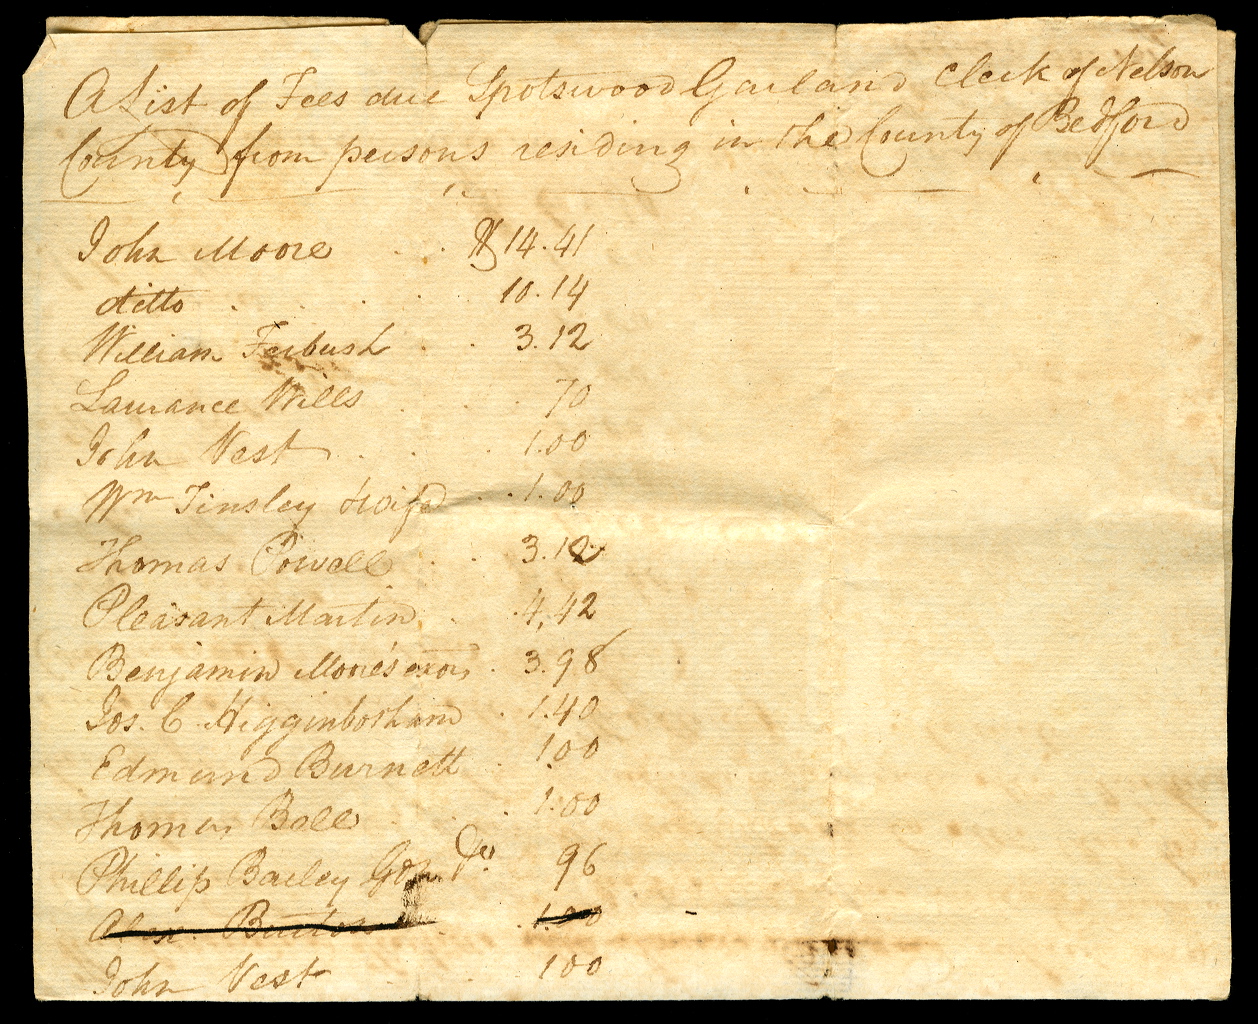 A List of Fees due Spotswood Garland Clerk of Nelson
County from persons residing in the County of Bedford
John Moore . . $14.41
ditto . . . . . 10.14
William Furbush . . 3.12
Laurance Wills . . . 70
John Vest . . . 1.00
Wm Tinsley . . 1.00
Thomas Powell . . 3.12
Pleasant Martin . . 4.42
Benjamin More's . 3.98
Jos. C. Higginbotham . 1.40
Edmund Burnett . 100
Thomas Bell . . 1.00
Phillip Bailey 96
Alex. Burton . . 1.00
John Vest 100